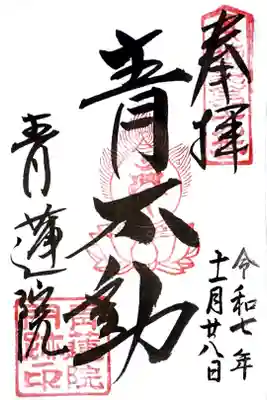 奉拝
令和七年
十一月廿八日
青不動
青蓮院